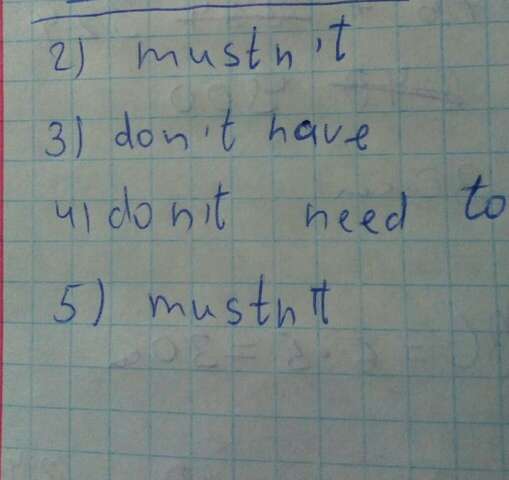 2) mustn't
3) don't have
4) don't need to
5) mustn't